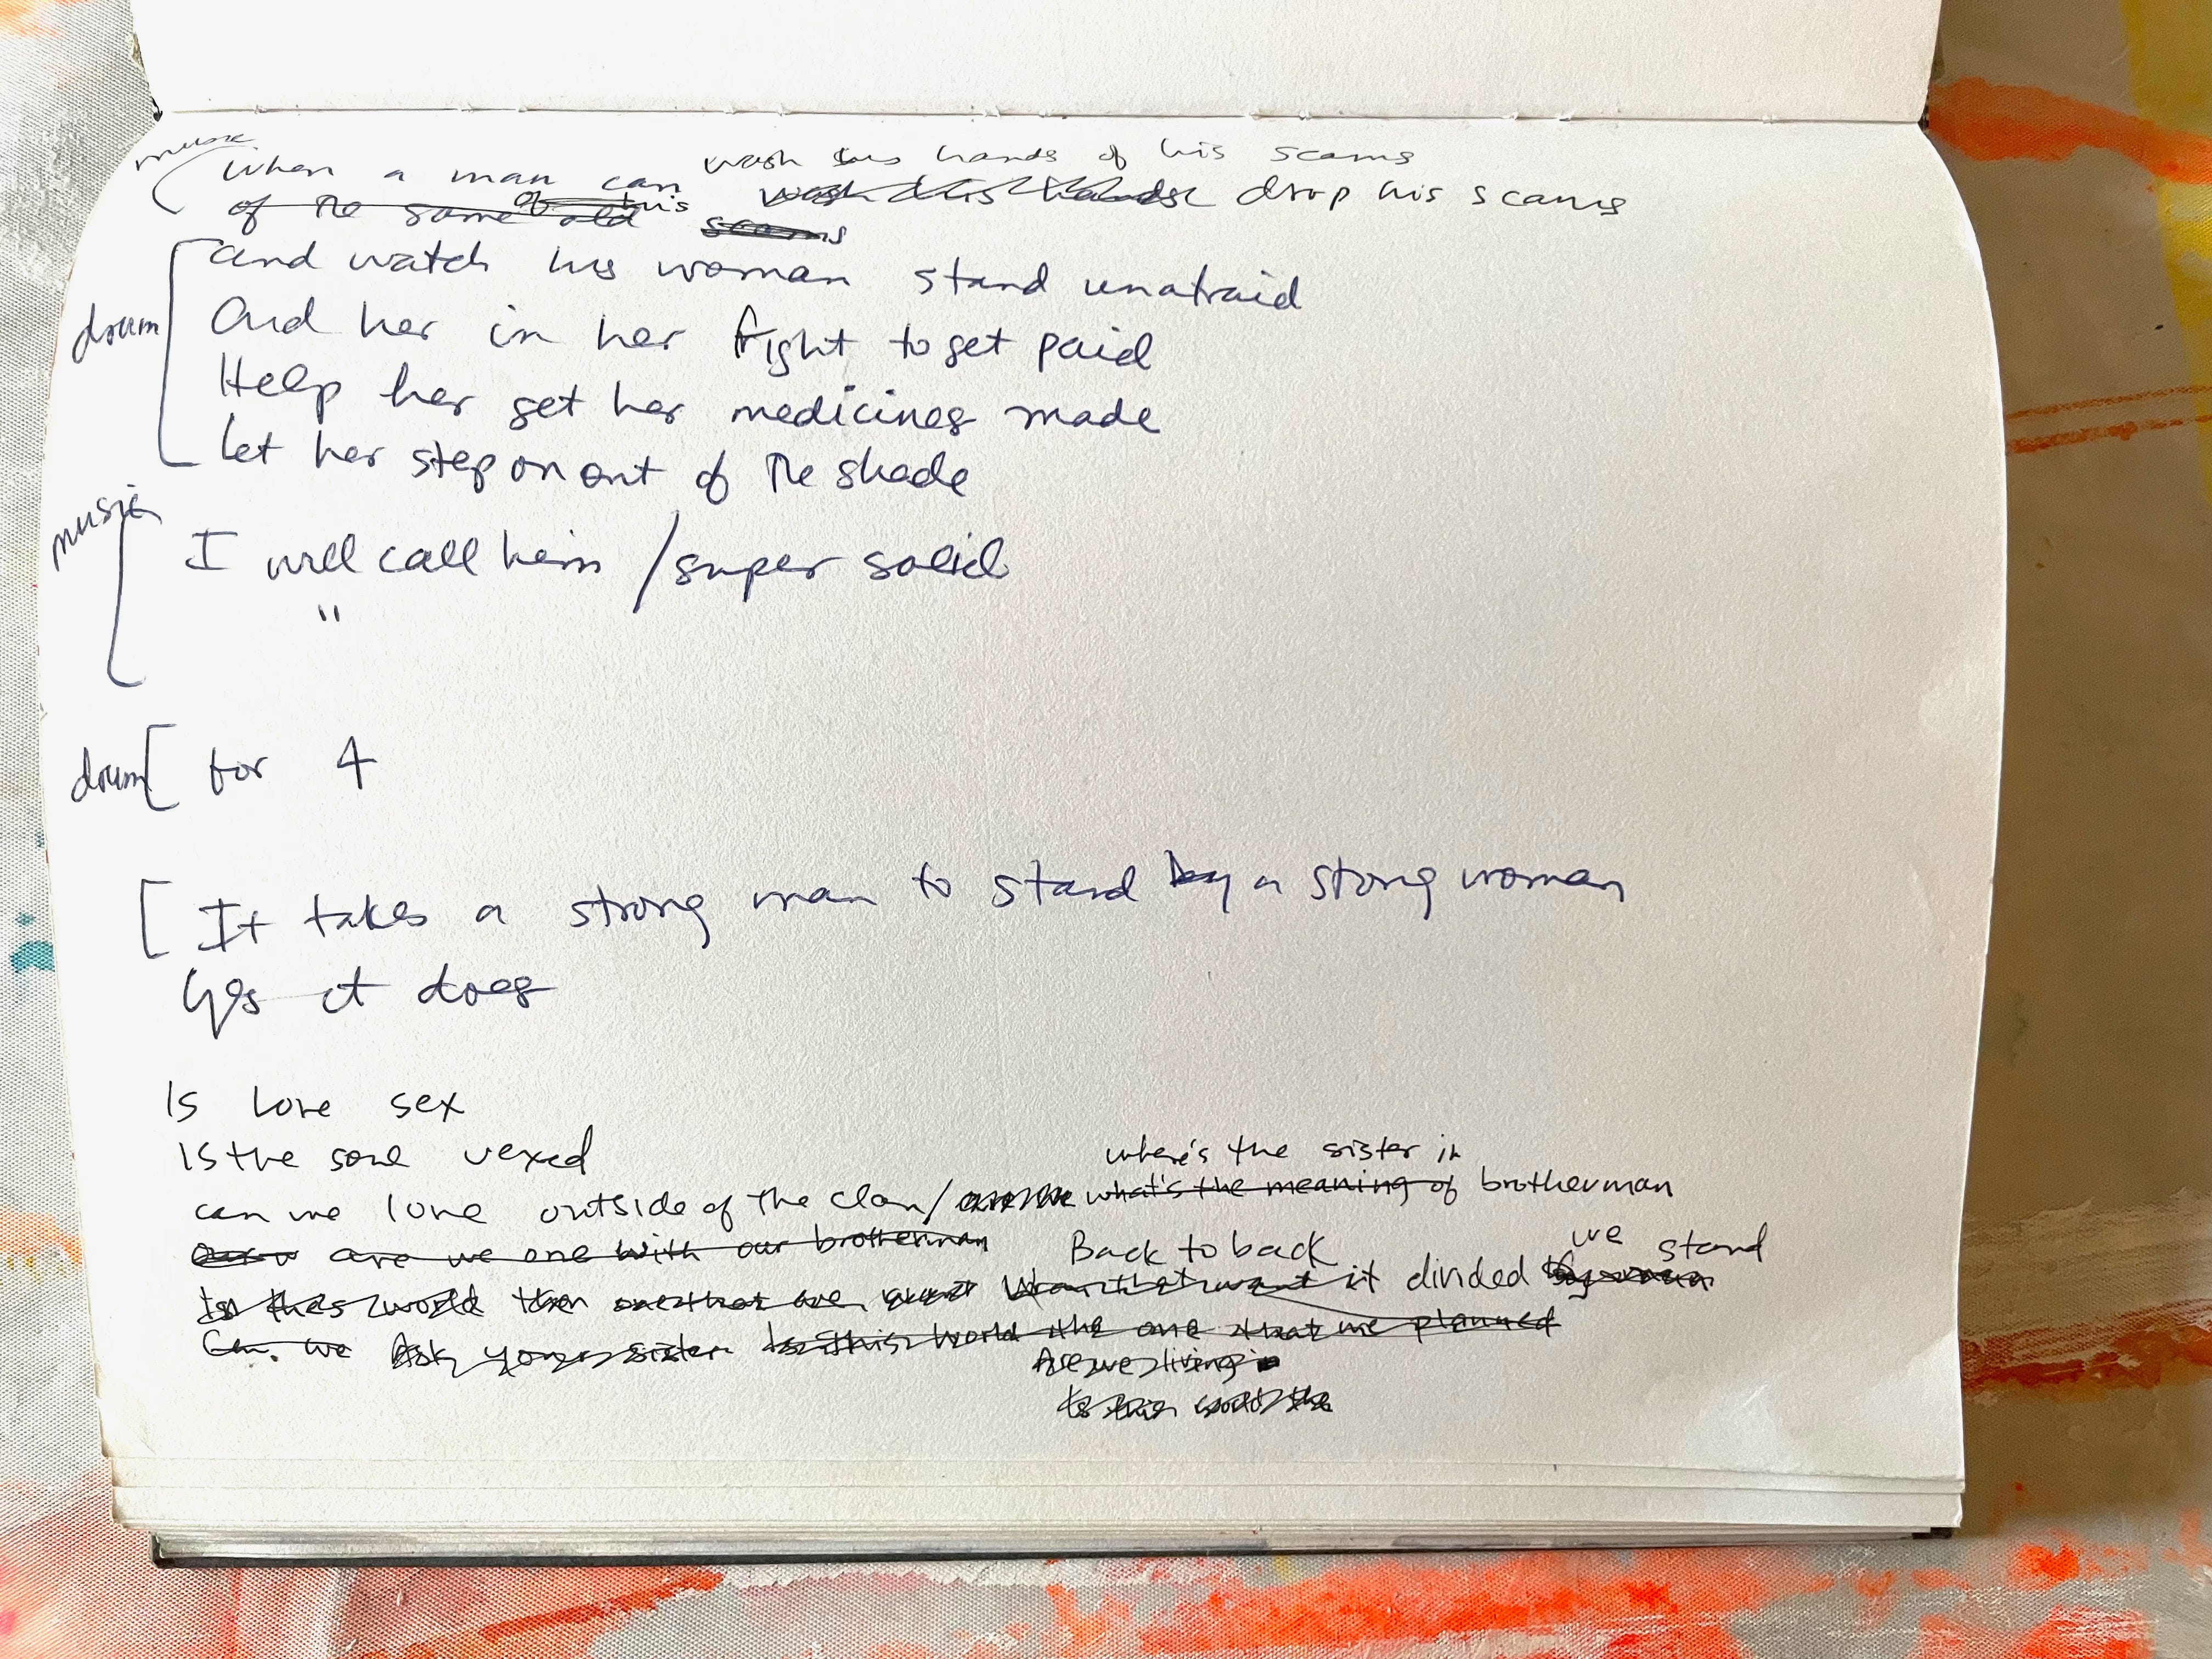 music
wash his hands of his scams
When a man can wash his hands drop his scams
of the same old of his scams
drum
and watch his woman stand unafraid
And her in her fight to get paid
Help her get her medicines made
Let her step on out of the shade
music
I will call him / super solid
"
drum [ for 4
[ It takes a strong man to stand by a strong woman
Yes it does
Is love sex
Is the soul vexed
where's the sister in
can we love outside of the clan / are we what's the meaning of brotherman
are we one with our brotherman
Back to back we stand
Is this world the one that we want it divided
Can we Ask your sister Is this world the one that we planned
Are we living in
Is this world the